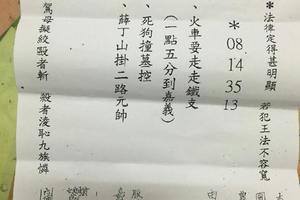 *法律定得甚明顯 若犯王法不容寬
*08.14.35 13
、火車要走走鐵支
(一點五分到嘉義)
、死狗撞墓控
、薛丁山掛二路元帥
駕母擬絞毆者斬 殺者淩恥九族憐